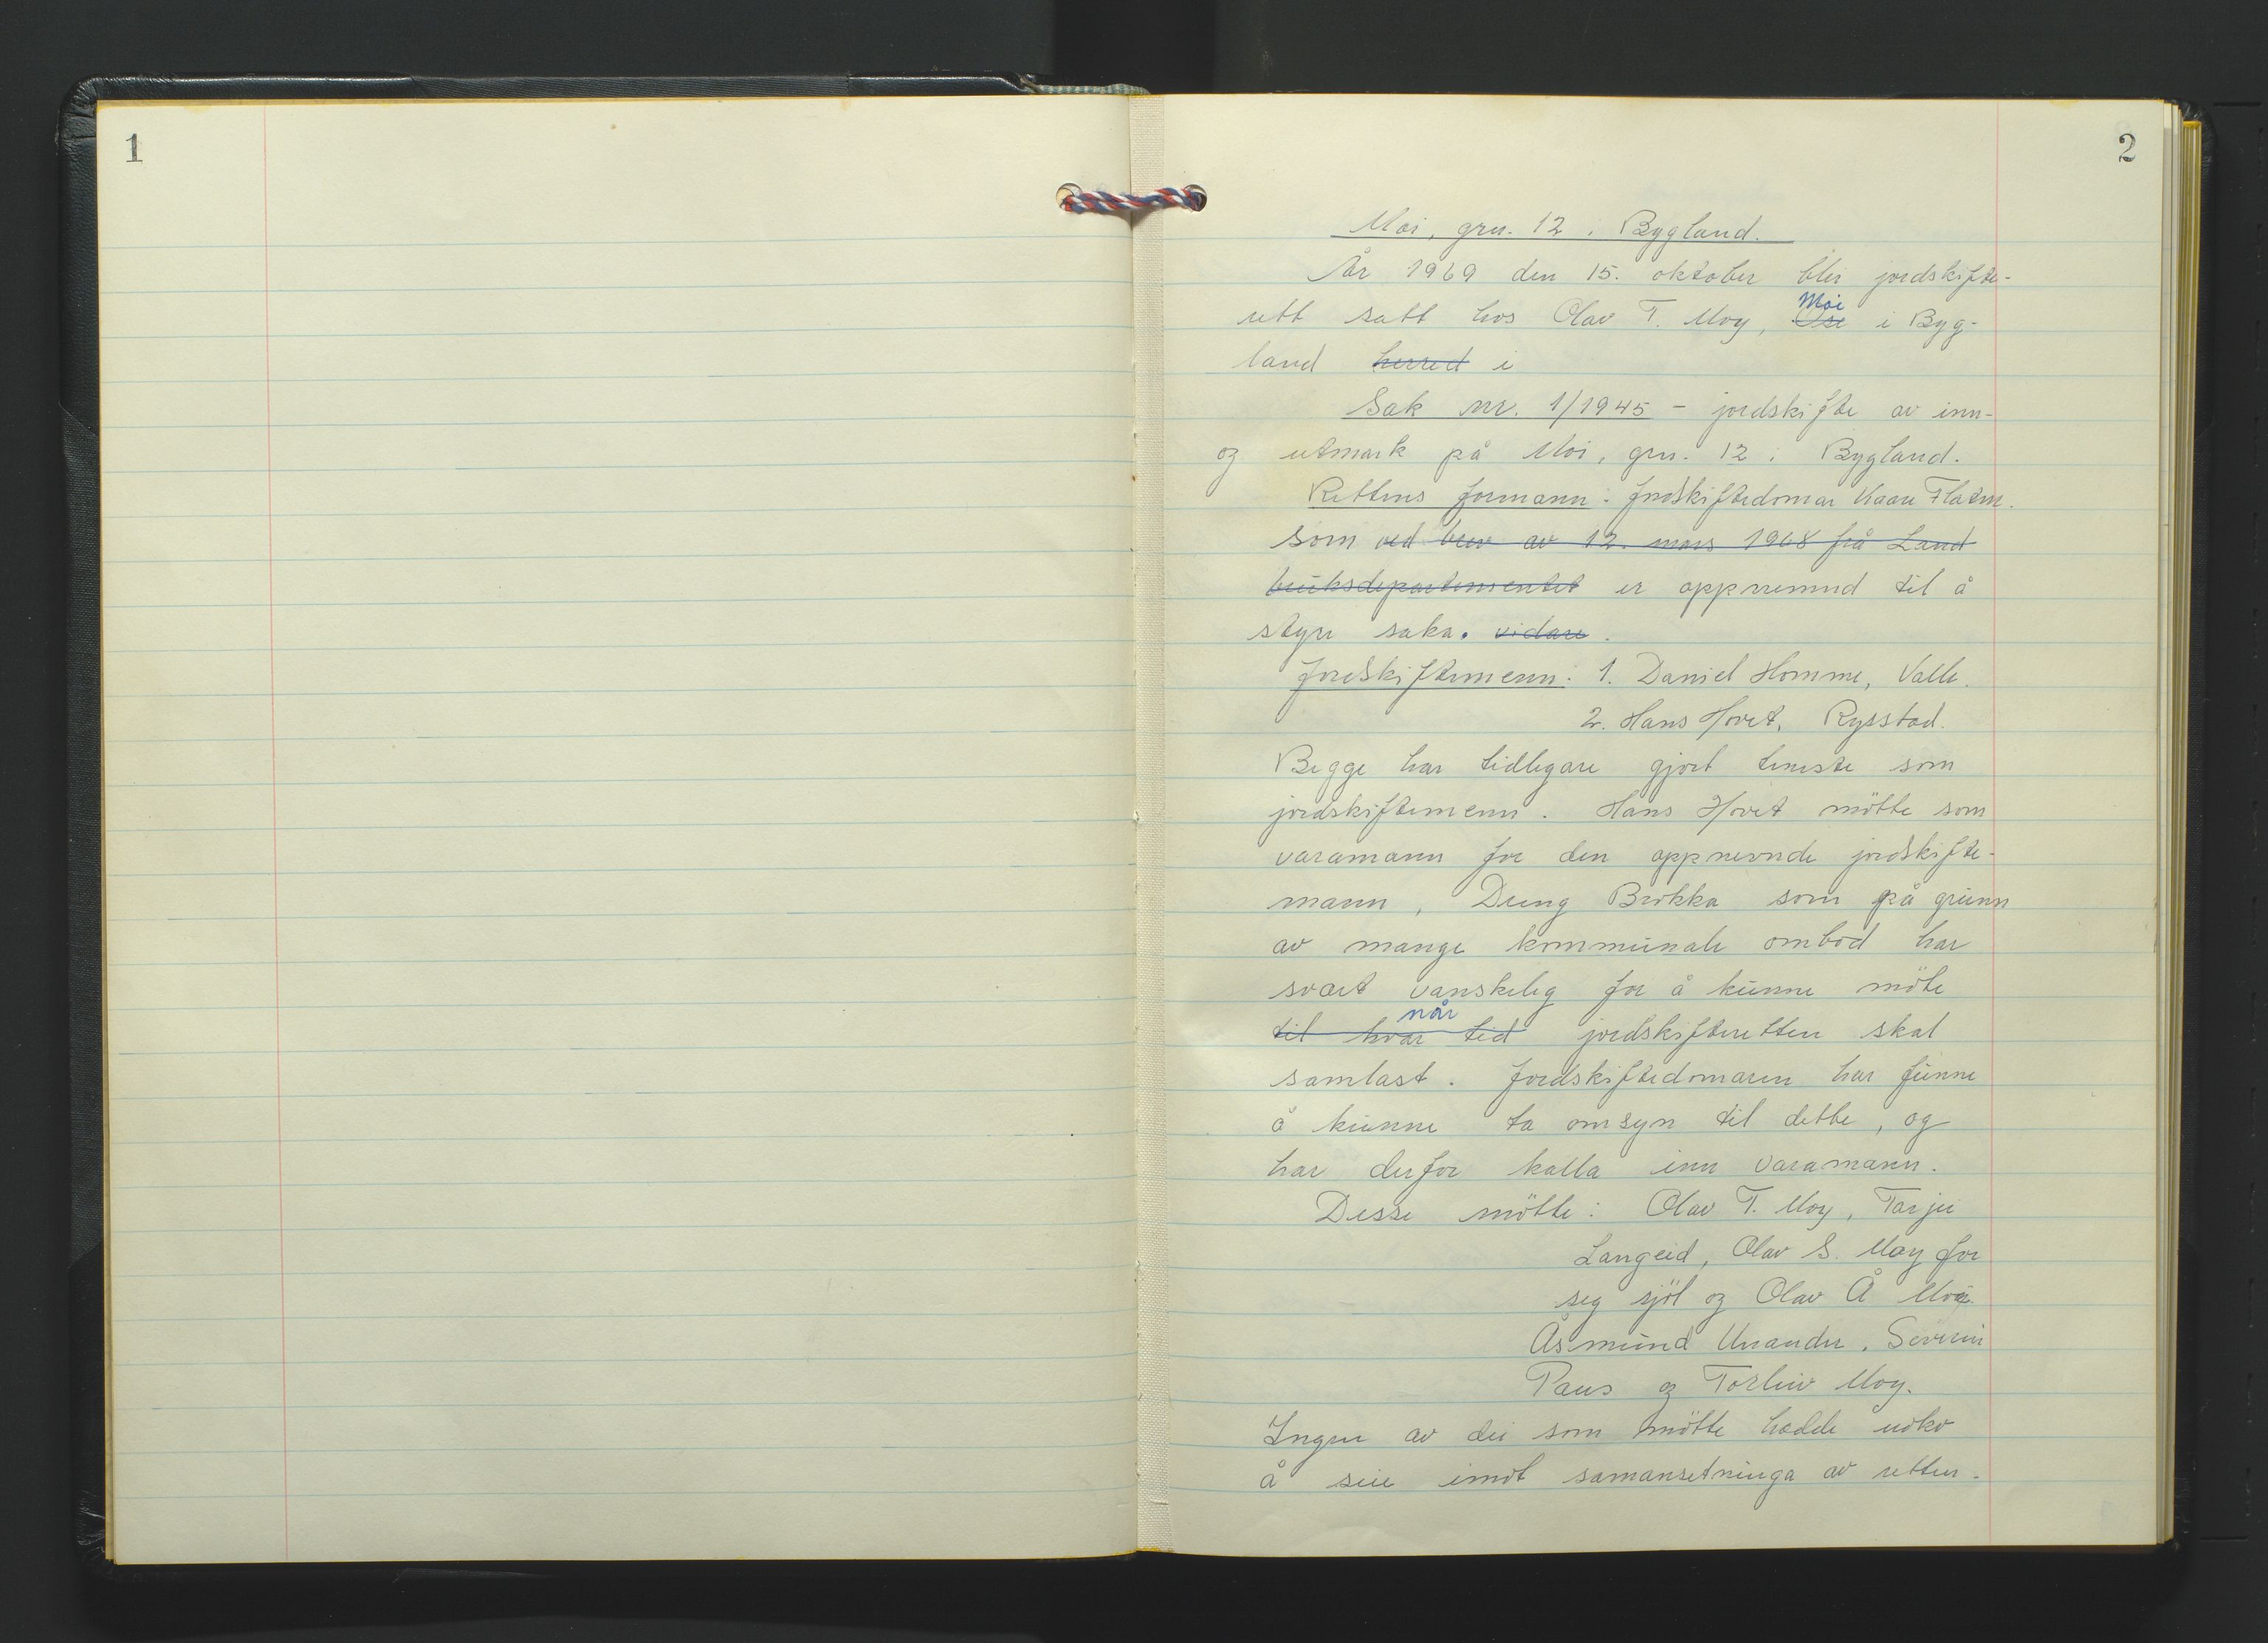 1
2
Moi, gnr. 12 i Bygland.
År 1969 den 15. oktober blei jordskifte-
rett satt hos Olav T. Moy, Ose Moi i Byg-
land herred i
Sak nr. 1/1945 - jordskifte av inn-
og utmark på Moi, gnr. 12 i Bygland.
Rettens formann: Jordskiftedomar Kaare Flaten.
som ved brev av 12. mars 1968 frå Land
bruksdepartementet er oppnemnd til å
styre saka. vidare.
Jordskiftemenn: 1. Daniel Homme, Valle.
2. Hans Hovet, Rysstad.
Begge har tidlegare gjort teneste som
jordskiftemenn. Hans Hovet møtte som
varamann for den oppnevnde jordskifte-
mann, Dreng Brokka som på grunn
av mange kommunale ombod har
svært vanskeleg for å kunne møte
til kvar tid når jordskifteretten skal
samlast. Jordskiftedomaren har funne
å kunne ta omsyn til dette, og
har derfor kalla inn varamann.
Desse møtte: Olav T. Moy, Tarjei
Langeid, Olav S. Moy for
seg sjøl og Olav Å Moi.
Åsmund Uvander, Severin
Paus og Torleiv Moy.
Ingen av dei som møtte hadde noko
å seie imot samansetninga av retten.